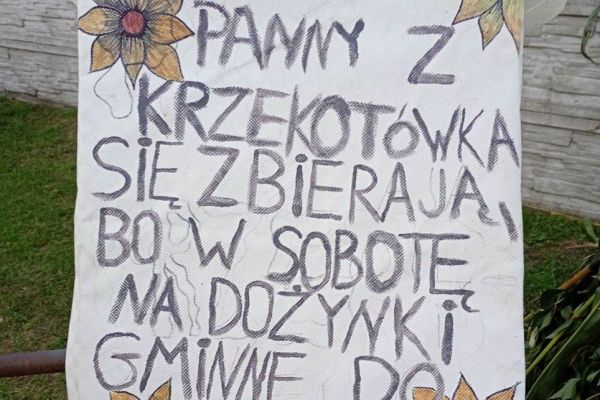 PANNY Z
KRZEKOTÓWKA
SIĘ ZBIERAJĄ,
BO W SOBOTĘ
NA DOŻYNKI
GMINNE DO